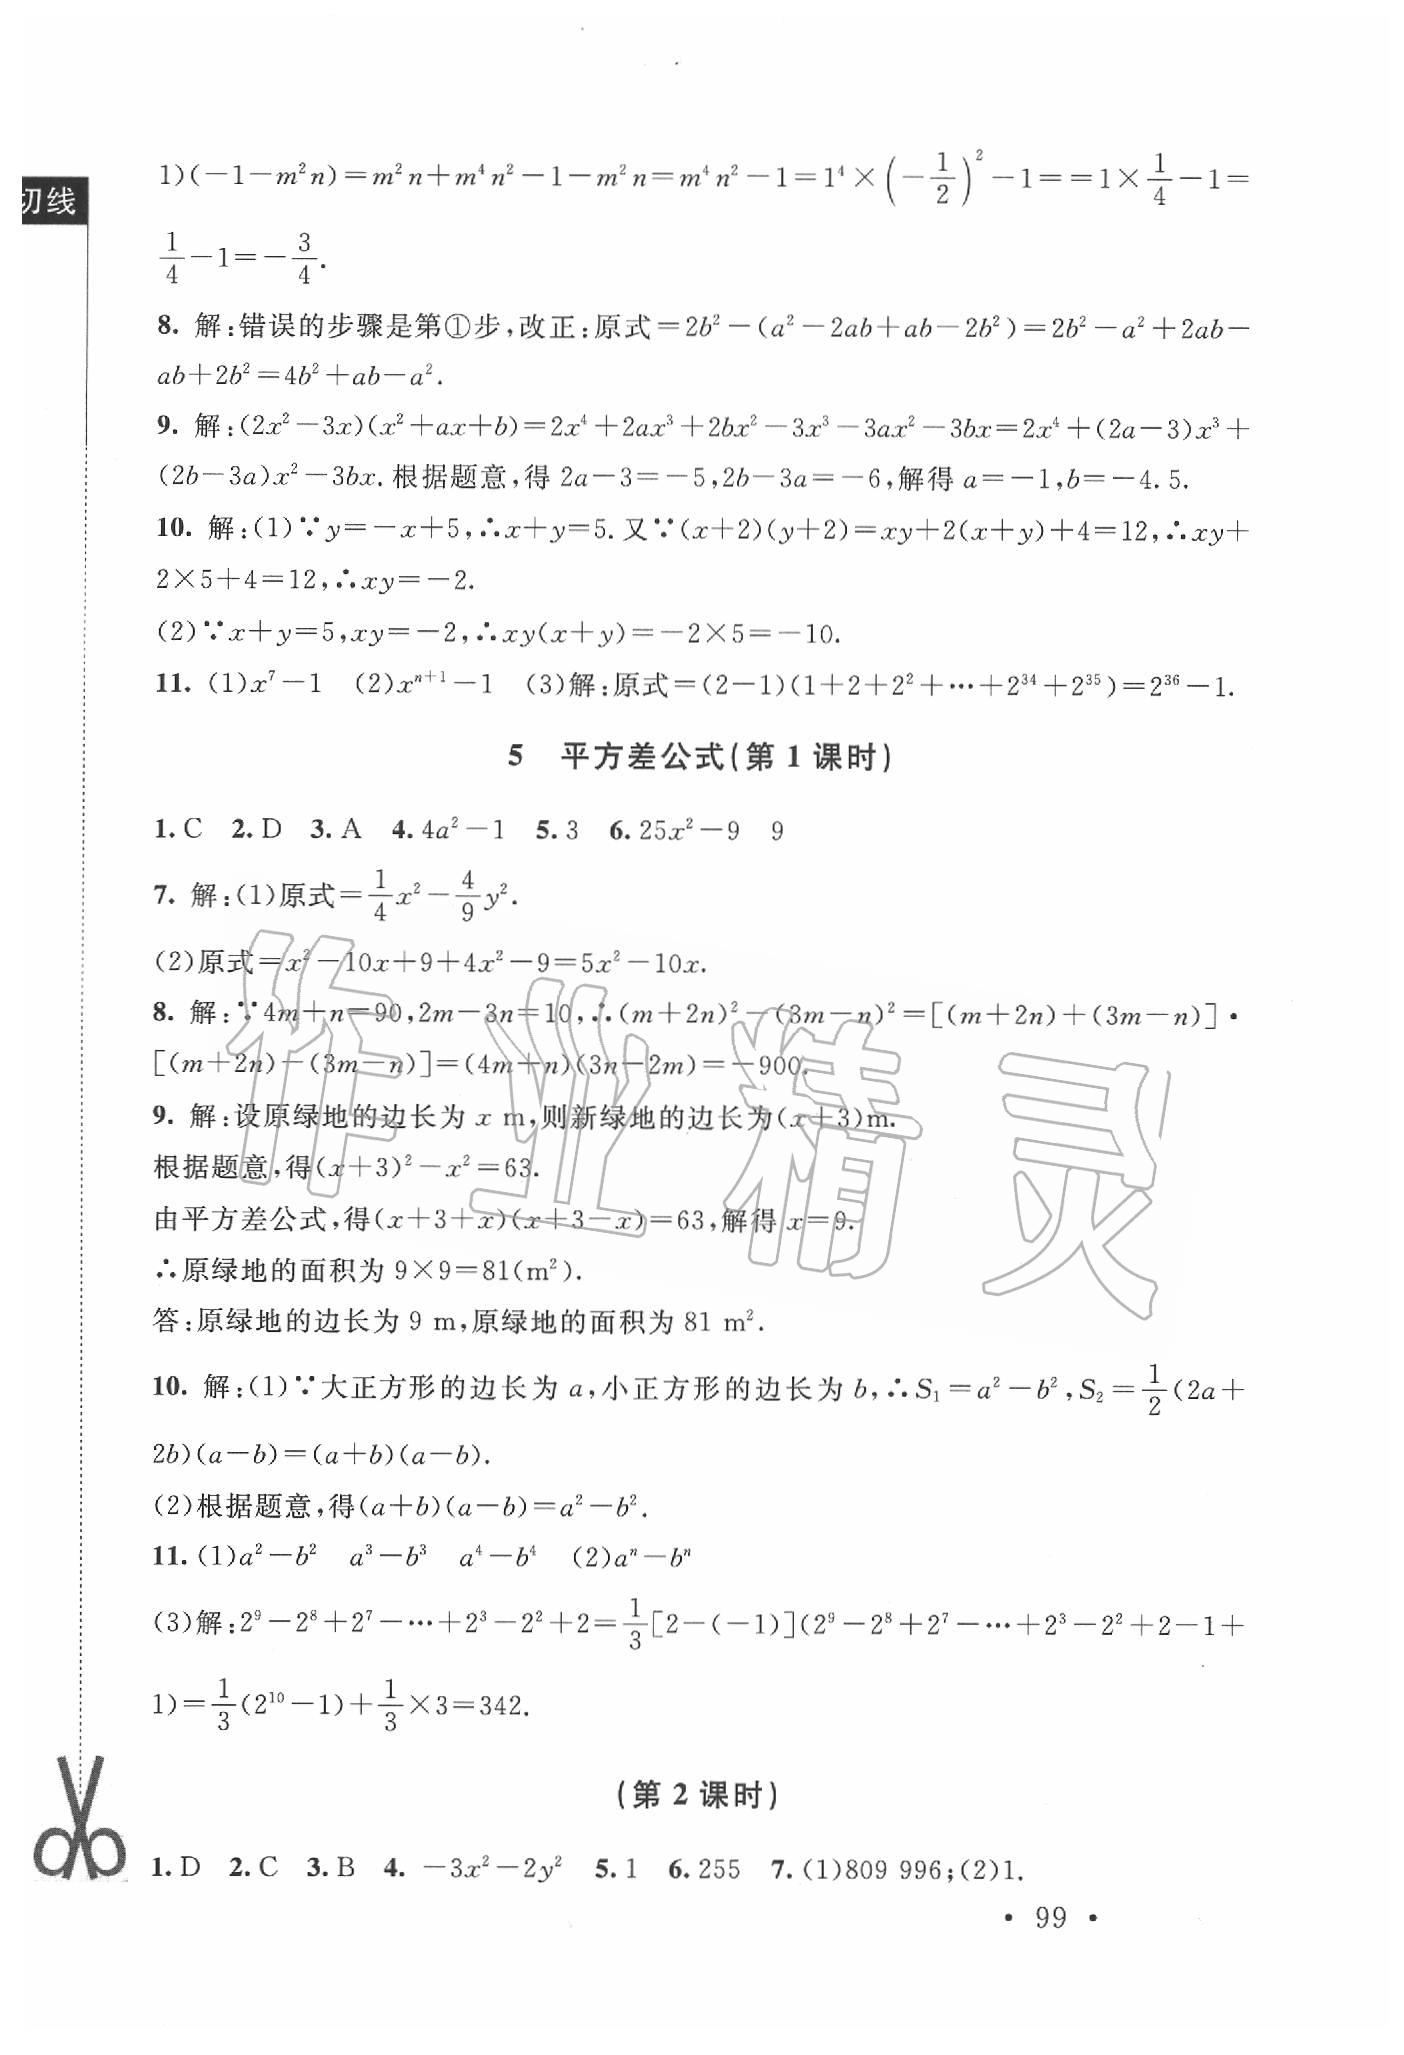 切线
1)(-1-m²n)=m²n+m⁴n²-1-m²n=m⁴n²-1=1⁴×(-1/2)²-1==1×1/4-1=
1/4-1=-3/4.
8. 解:错误的步骤是第①步,改正:原式=2b²-(a²-2ab+ab-2b²)=2b²-a²+2ab-
ab+2b²=4b²+ab-a².
9. 解:(2x²-3x)(x²+ax+b)=2x⁴+2ax³+2bx²-3x³-3ax²-3bx=2x⁴+(2a-3)x³+
(2b-3a)x²-3bx.根据题意,得 2a-3=-5,2b-3a=-6,解得 a=-1,b=-4.5.
10. 解:(1)∵y=-x+5,∴x+y=5.又∵(x+2)(y+2)=xy+2(x+y)+4=12,∴xy+
2×5+4=12,∴xy=-2.
(2)∵x+y=5,xy=-2,∴xy(x+y)=-2×5=-10.
11. (1)x⁷-1 (2)xⁿ⁺¹-1 (3)解:原式=(2-1)(1+2+2²+…+2³⁴+2³⁵)=2³⁶-1.
5 平方差公式(第1课时)
1.C 2.D 3.A 4.4a²-1 5.3 6.25x²-9 9
7. 解:(1)原式=1/4x²-4/9y².
(2)原式=x²-10x+9+4x²-9=5x²-10x.
8. 解:∵4m+n=90,2m-3n=10,∴(m+2n)²-(3m-n)²=[(m+2n)+(3m-n)]·
[(m+2n)-(3m-n)]=(4m+n)(3n-2m)=-900.
9. 解:设原绿地的边长为 x m,则新绿地的边长为(x+3)m.
根据题意,得(x+3)²-x²=63.
由平方差公式,得(x+3+x)(x+3-x)=63,解得 x=9.
∴原绿地的面积为 9×9=81(m²).
答:原绿地的边长为 9 m,原绿地的面积为 81 m².
10. 解:(1)∵大正方形的边长为 a,小正方形的边长为 b,∴S₁=a²-b²,S₂=1/2(2a+
2b)(a-b)=(a+b)(a-b).
(2)根据题意,得(a+b)(a-b)=a²-b².
11.(1)a²-b² a³-b³ a⁴-b⁴ (2)aⁿ-bⁿ
(3)解:2⁹-2⁸+2⁷-…+2³-2²+2=1/3[2-(-1)](2⁹-2⁸+2⁷-…+2³-2²+2-1+
1)=1/3(2¹⁰-1)+1/3×3=342.
(第2课时)
1.D 2.C 3.B 4. -3x²-2y² 5.1 6.255 7.(1)809 996;(2)1.
· 99 ·
作业精灵